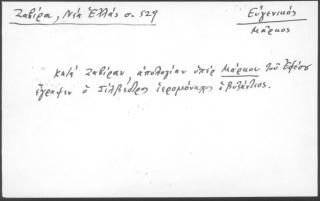 Ζαβίρα, Νέα Ἑλλάς σ. 529
Εὐγενικός
Μᾶρκος
Κατά Ζαβίραν, ἀπολογίαν ὑπέρ Μάρκου τοῦ Ἐφέσου
ἔγραψεν ὁ Σίλβεστρος ἱερομόναχος ὁ Βυζάντιος.